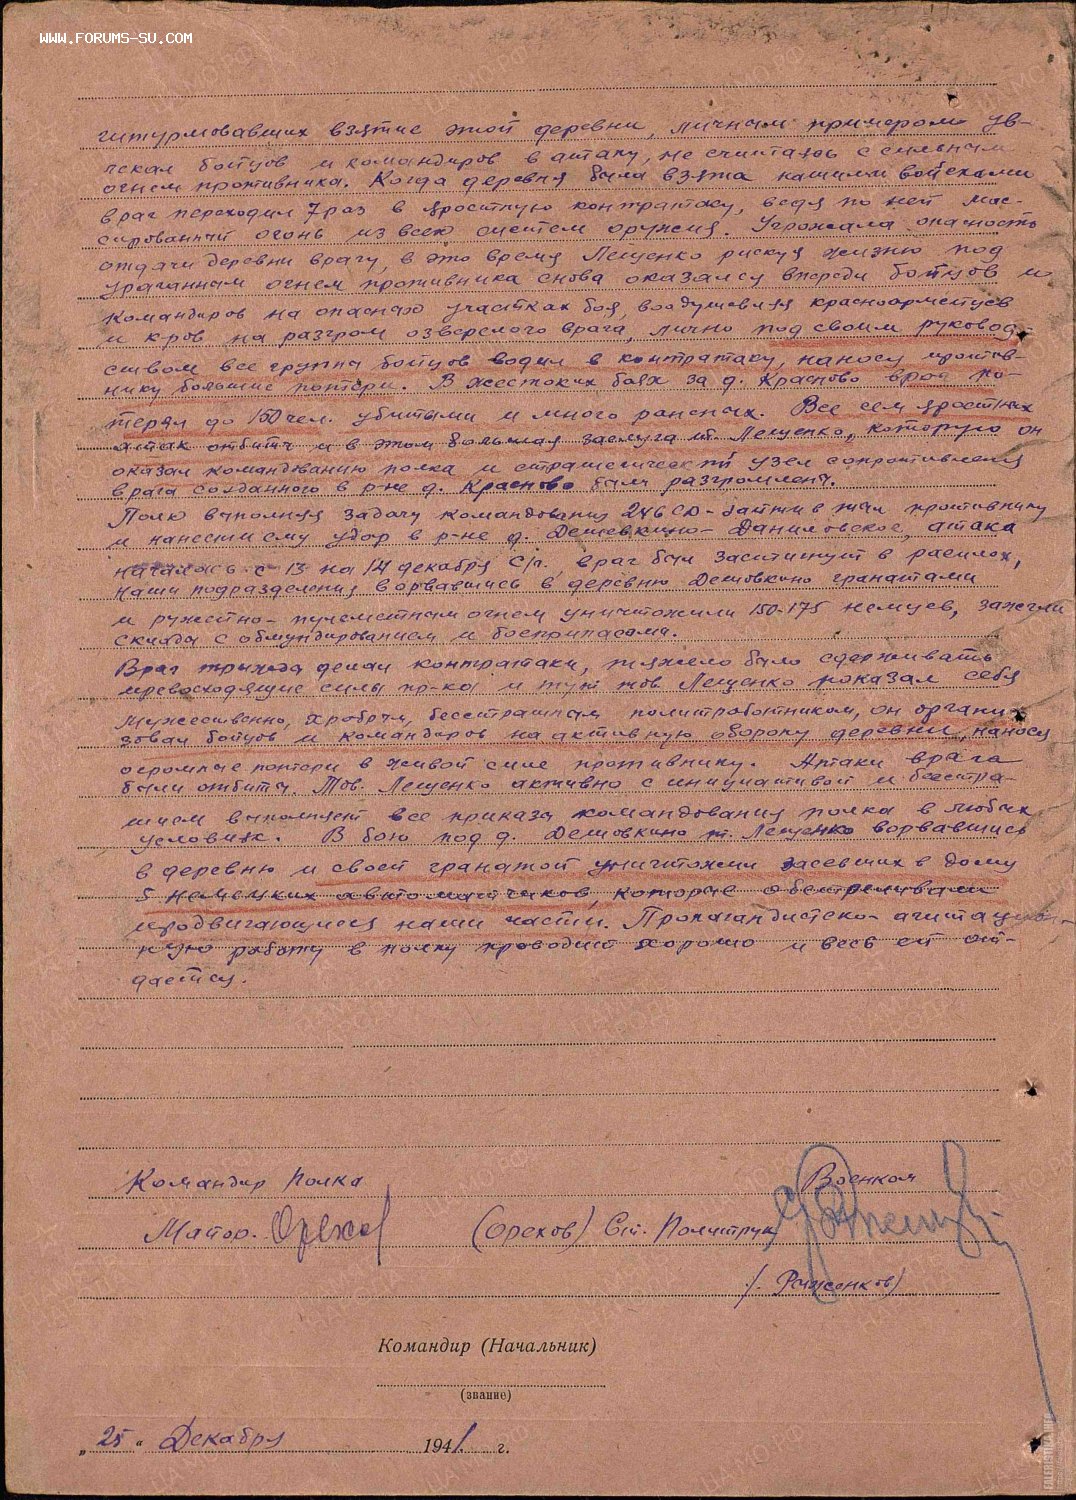 WWW.FORUMS-SU.COM
штурмовавших взятие этой деревни, личным примером ув-
лекал бойцов и командиров в атаку, не считаясь с сильным
огнем противника. Когда деревня была взята нашими войсками
враг переходил 7 раз в яростную контратаку, ведя по ней мас-
сированный огонь из всех систем оружия. Угрожала опасность
отдачи деревни врагу, в это время Лещенко рискуя жизню под
ураганным огнем противника снова оказался впереди бойцов и
командиров на опасных участках боя, воодушевляя красноармейцев
и к-ров на разгром озверелого врага, лично под своим руковод-
ством все группы бойцов водил в контратаку, наносу против-
нику большие потери. В жестоких боях за д. Красново враг по-
терял до 150 чел. убитыми и много раненых. Все сем яростных
атак отбиты и в этом большая заслуга т. Лещенко, которую он
оказал командованию полка и стратегический узел сопротивления
врага созданного в р-не д. Красново был разгромлен.
Полк выполняя задачу командования 246 СД - противнику
и нанести ему удар в р-не д. Дешевкино - Даниловское, атака
началась с 13 на 14 декабря с/г., враг был застигнут в расплох,
наши подразделения ворвавшись в деревню Дешовкино гранатами
и ружейно-пулеметным огнем уничтожили 150-175 немцев, зажгли
склады с обмундированием и боеприпасами.
Враг трижды делал контратаки, тяжело было сдерживать
превосходящие силы пр-ка и тут тов. Лещенко показал себя
мужественным, храбрым, бесстрашным политработником, он органи-
зовал бойцов и командиров на активную оборону деревни, наносу
огромные потери в живой силе противнику. Атаки врага
были отбиты. Тов. Лещенко активно с инициативой и бесстра-
шием выполняет все приказы командования полка в любых
условиях. В бою под д. Дешовкино т. Лещенко ворвавшись
в деревню и своей гранатой уничтожил засевших в дому
5 немецких автоматчиков, которые обстреливали
продвигающиеся наши части. Пропагандистско-агитацион-
ную работу в полку проводит хорошо и весь ей от-
дается.
Командир полка Военком
Майор. Орехов (Орехов) Ст. Политрук
Командир (Начальник)
(звание)
„25" Декабря 1941 г.
FALERISTIKA.INFO